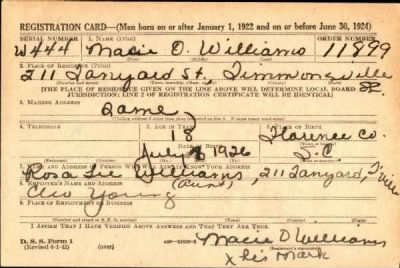 REGISTRATION CARD—(Men born on or after January 1, 1922 and on or before June 30, 1924)
SERIAL NUMBER 1. NAME (Print) ORDER NUMBER
W444 Macie D. Williams 11899
2. PLACE OF RESIDENCE (Print)
211 Tanyard St. Timmonsville
[THE PLACE OF RESIDENCE GIVEN ON THE LINE ABOVE WILL DETERMINE LOCAL BOARD
JURISDICTION; LINE 2 OF REGISTRATION CERTIFICATE WILL BE IDENTICAL]
3. MAILING ADDRESS
Same
4. TELEPHONE 5. AGE IN YEARS 6. PLACE OF BIRTH
18 Florence Co.
July 8 1926 S.C.
7. NAME AND ADDRESS OF PERSON WHO WILL ALWAYS KNOW YOUR ADDRESS
Rosa Lee Williams (Aunt), 211 Tanyard, T'ville
8. EMPLOYER'S NAME AND ADDRESS
Cleo Young
9. PLACE OF EMPLOYMENT OR BUSINESS
I AFFIRM THAT I HAVE VERIFIED ABOVE ANSWERS AND THAT THEY ARE TRUE.
D. S. S. Form 1
(Revised 6-1-42) (over) Macie D Williams
(Registrant's signature)
X his Mark